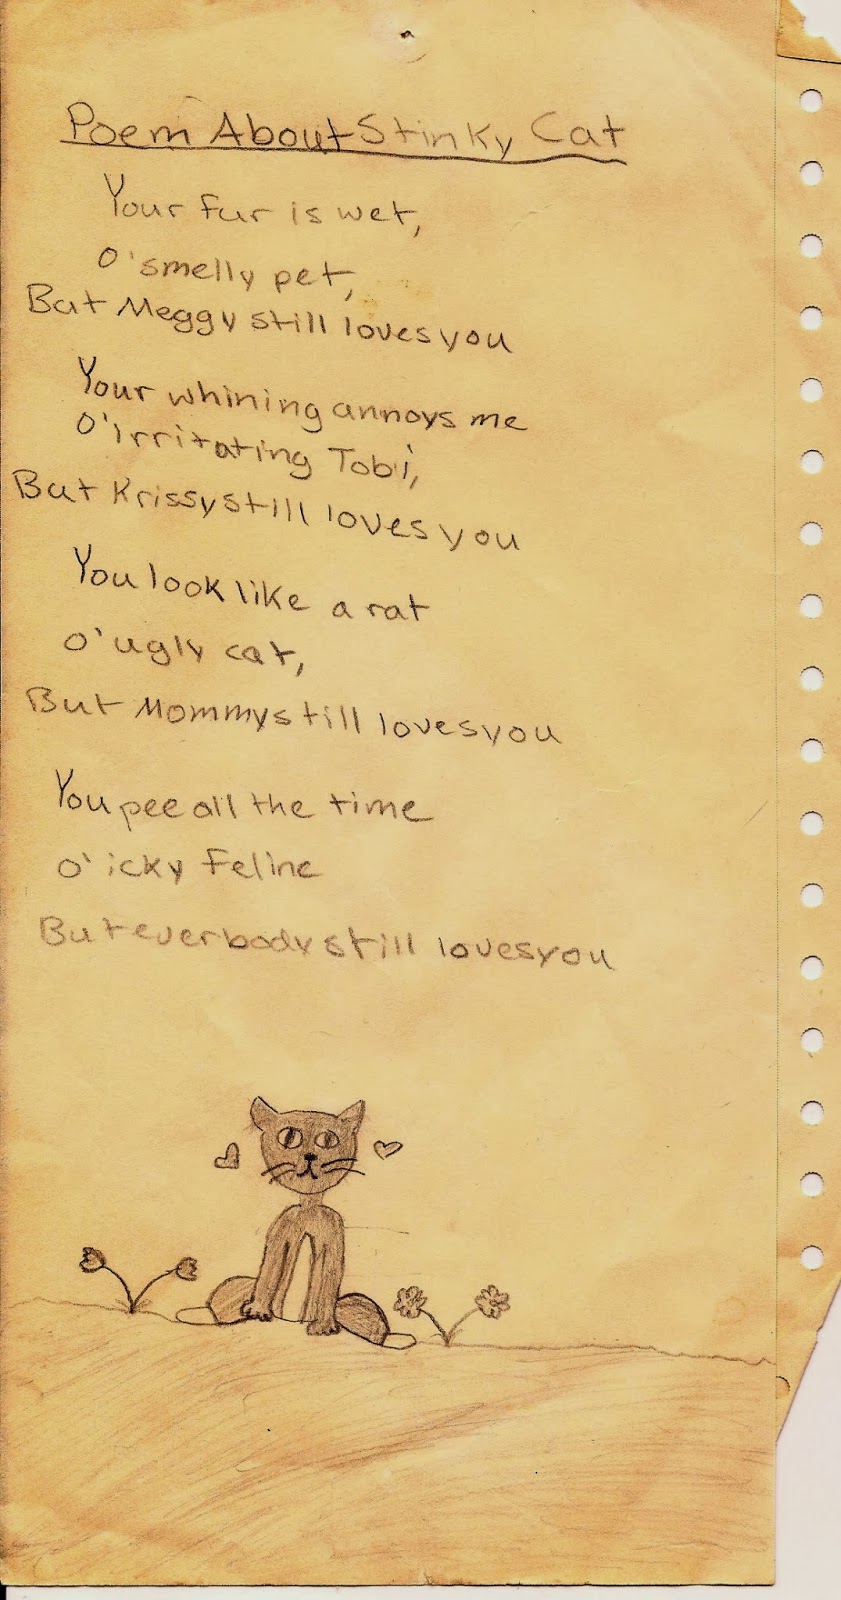 Poem About Stinky Cat
Your fur is wet,
O'smelly pet,
But Meggy still loves you
Your whining annoys me
O'irritating Tobi,
But Krissy still loves you
You look like a rat
O'ugly cat,
But Mommy still loves you
You pee all the time
O'icky Feline
But everbody still loves you